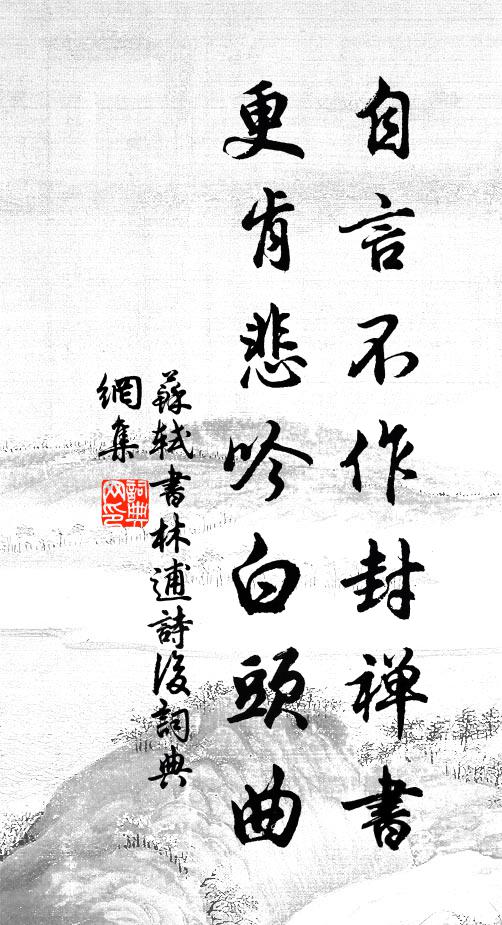 自言不作封禅書
更肯悲吟白頭曲
蘇軾書林逋詩後詞典
網集
詞典網印